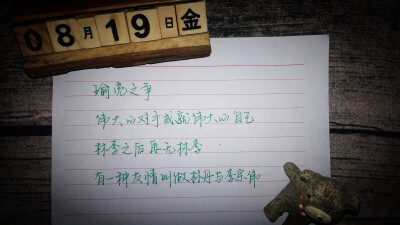 08月19日金
瑜亮之争
伟大的对手成就伟大的自己
林李之后再无林李
有一种友情叫做林丹与李宗伟